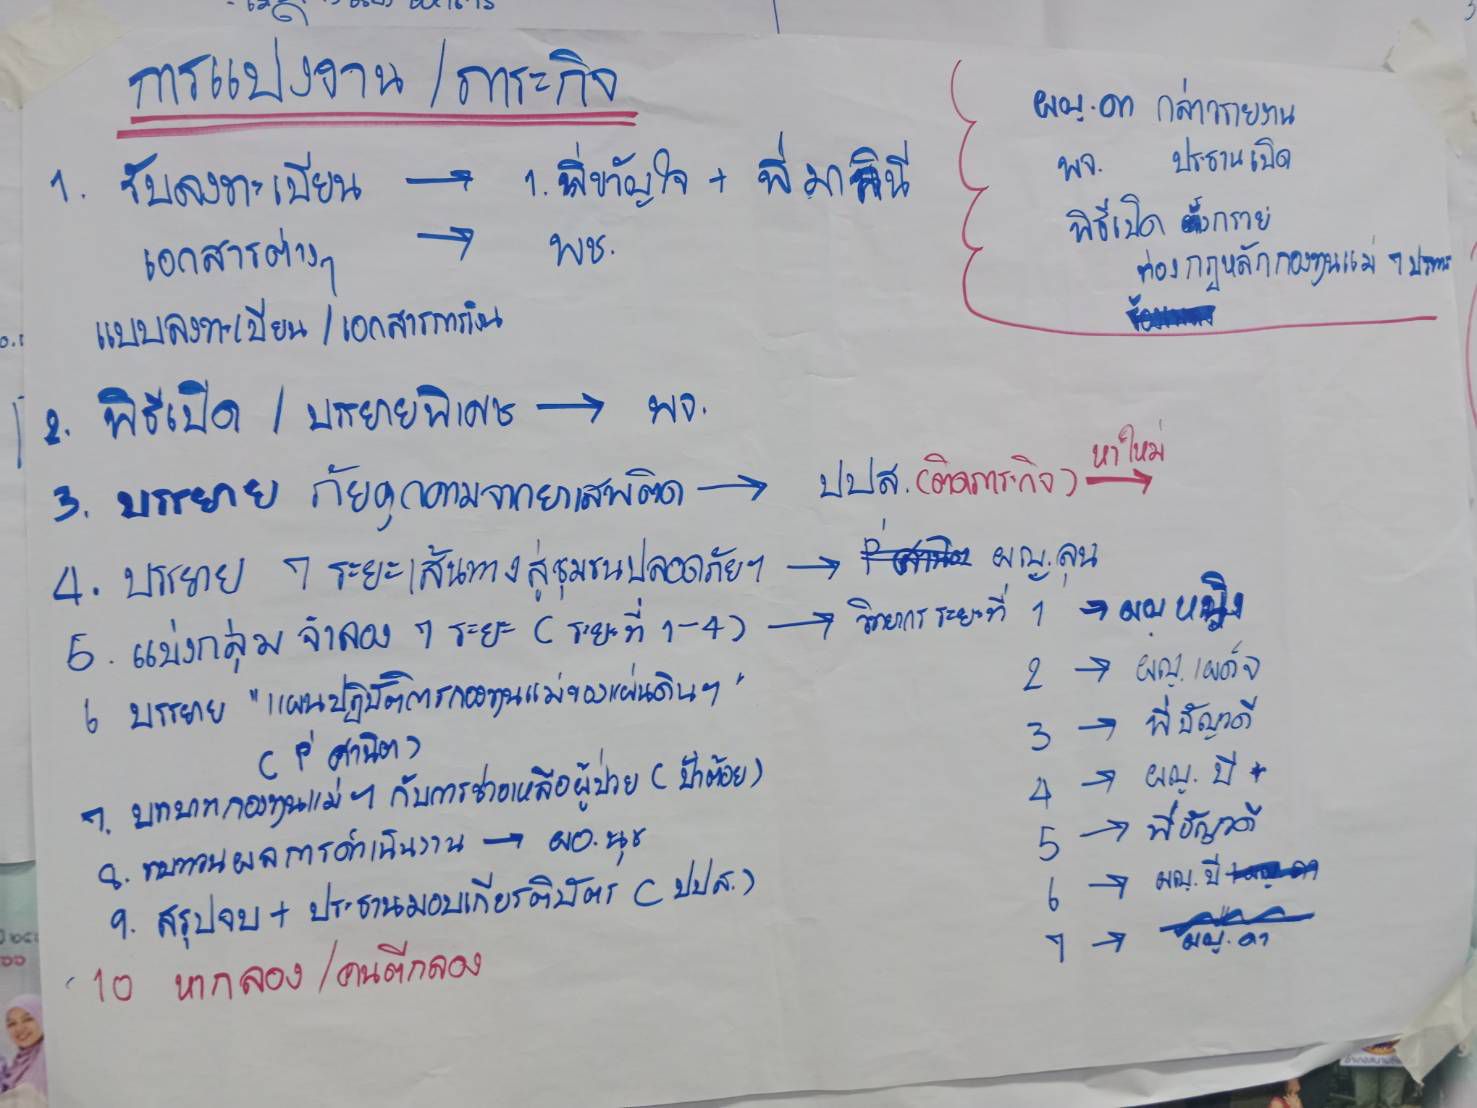 การแบ่งงาน / ภาระกิจ
1. รับลงทะเบียน → 1. พี่ขวัญใจ + พี่มาลินี
เอกสารต่างๆ → พช.
แบบลงทะเบียน / เอกสารการเงิน
2. พิธีเปิด / บรรยายพิเศษ → พจ.
3. บรรยาย ภัยคุกคามจากยาเสพติด → ปปส. (ติดภาระกิจ) หาใหม่ →
4. บรรยาย 7 ระยะเส้นทางสู่ชุมชนปลอดภัยฯ → ผญ.ลุน
5. แบ่งกลุ่ม จำลอง 7 ระยะ ( ระยะที่ 1-4 ) → วิทยากร ระยะที่ 1 → ผญ.หญิง
2 → ผญ.เผด็จ
3 → พี่ธัญวดี
4 → ผญ. ปี +
5 → พี่ธัญวดี
6 → ผญ. ปี
7 → ผญ. ดา
6 บรรยาย "แผนปฏิบัติการกองทุนแม่ของแผ่นดินฯ"
( P' ศานิต )
7. บทบาทกองทุนแม่ฯ กับการช่วยเหลือผู้ป่วย ( ป้าต้อย )
8. ทบทวนผลการดำเนินงาน → ผอ.นุช
9. สรุปจบ + ประธานมอบเกียรติบัตร ( ปปส. )
10 หากลอง / คนตีกลอง
ผญ.ดา กล่าวรายงาน
พจ. ประธานเปิด
พิธีเปิด
ท่องกฎหลักกองทุนแม่ 7 ประการ